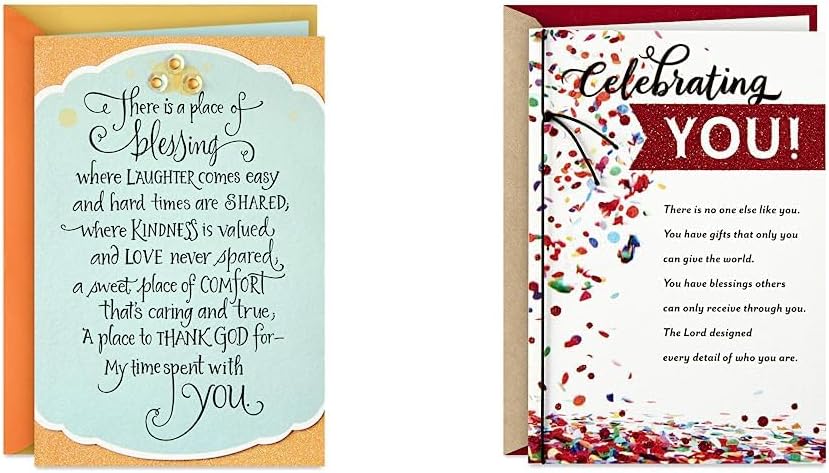 There is a place of
blessing
where LAUGHTER comes easy
and hard times are SHARED,
where KINDNESS is valued
and LOVE never spared,
a sweet place of COMFORT
that's caring and true,
A place to THANK GOD for—
My time spent with
YOU.
Celebrating
YOU!
There is no one else like you.
You have gifts that only you
can give the world.
You have blessings others
can only receive through you.
The Lord designed
every detail of who you are.